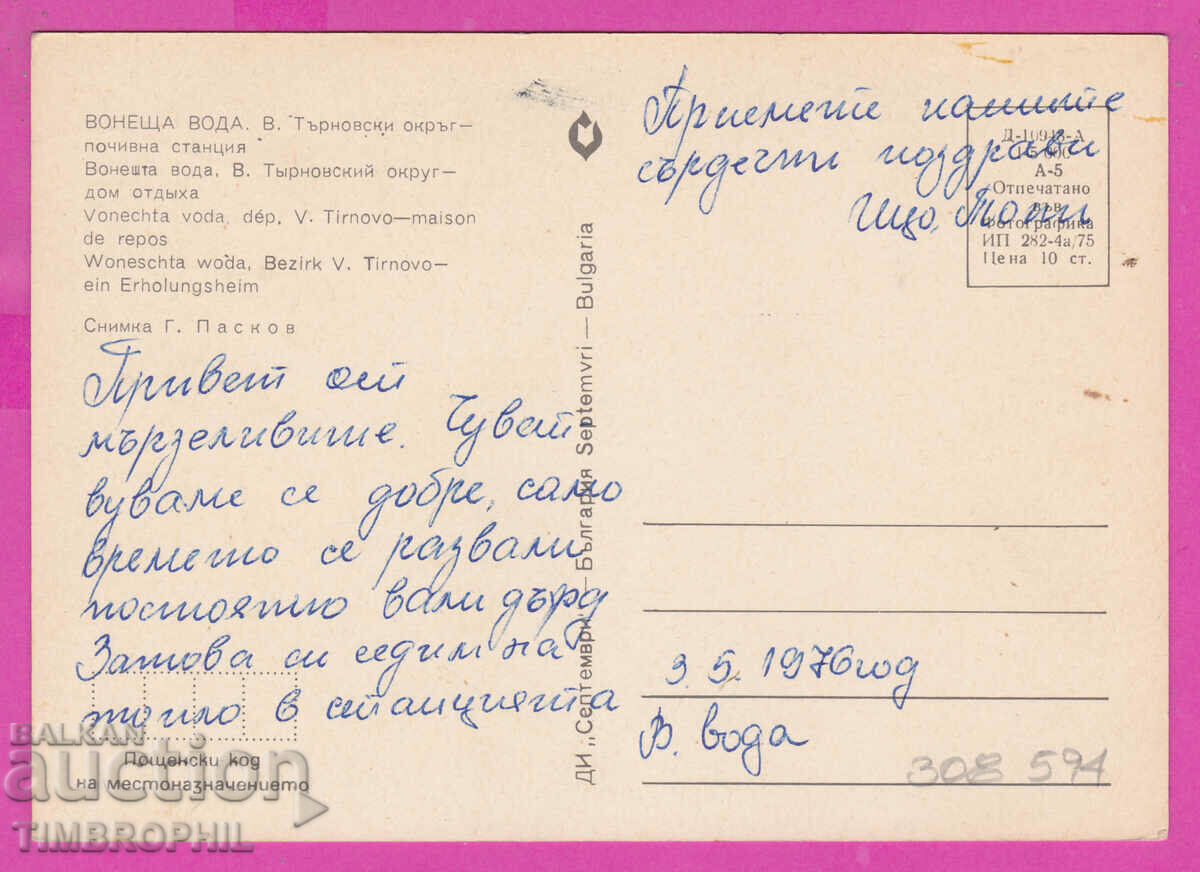 ВОНЕЩА ВОДА. В. Търновски окръг—
почивна станция
Вонешта вода, В. Тырновский округ—
дом отдыха
Vonechta voda, dép. V. Tirnovo—maison
de repos
Woneschta woda, Bezirk V. Tirnovo—
ein Erholungsheim
Снимка Г. Пасков
Привет от
мързеливите. Чувст
вуваме се добре, само
времето се развали
постоянно вали дъжд
Затова си седим на
топло в станцията
Пощенски код
на местоназначението
ДИ „Септември“ — България Septemvri — Bulgaria
Приемете нашите
сърдечни поздрави
Ицо,
Д-10948-А
А-5
Отпечатано
във
Фотографика
ИП 282-4а/75
Цена 10 ст.
9.5. 1976 год
В. вода
308 594
BALKAN
auction
TIMBROPHIL